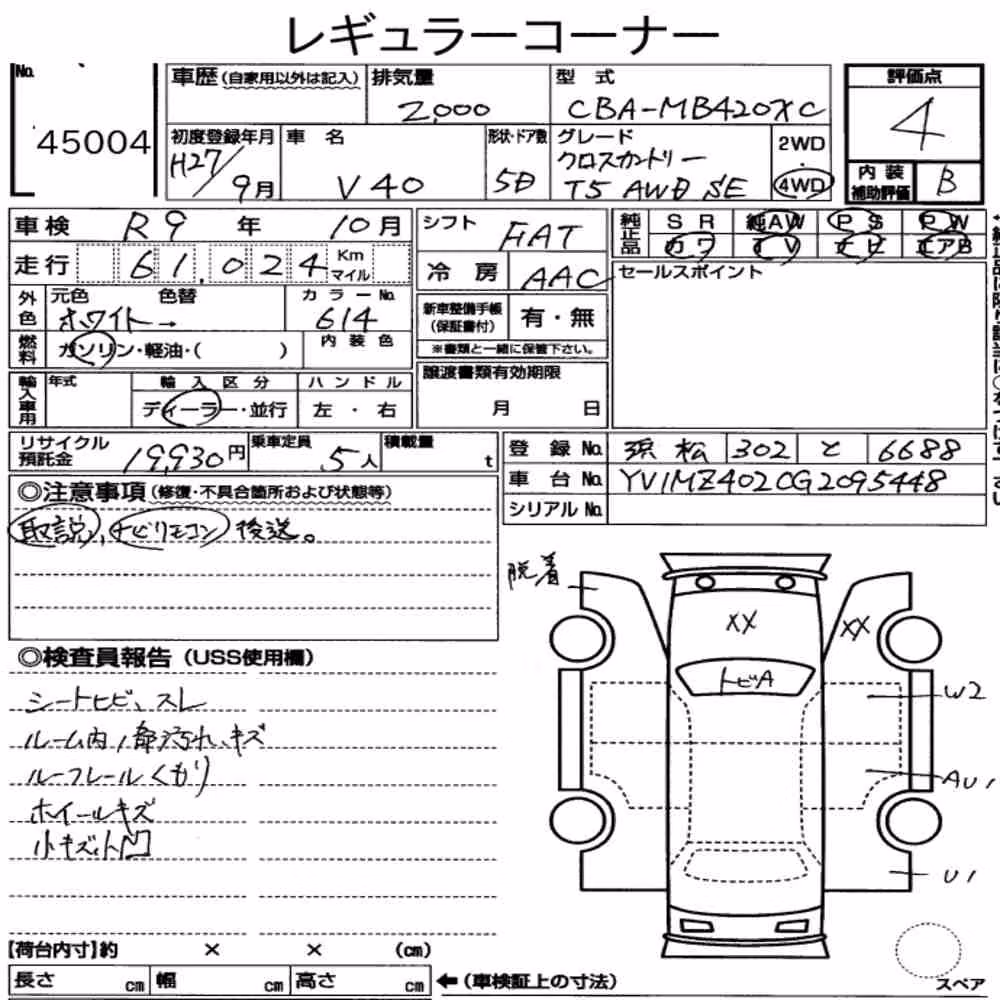 レギュラーコーナー
No.
45004
車歴(自家用以外は記入)
排気量
2,000
型 式
CBA-MB420XC
評価点
4
初度登録年月
H27/9月
車 名
V40
形状・ドア数
5D
グレード
クロスカントリー
T5 AWD SE
2WD
・
4WD
内 装
補助評価
B
車検 R9年 10月
シフト
FAT
純正品
SR 純AW PS PW
カワ TV ナビ エアB
走行 61,024 Km マイル
冷 房 AAC
セールスポイント
外色
元色 色替
ホワイト→
カラーNo.
614
新車整備手帳
(保証書付)
有・無
※書類と一緒に保管下さい。
燃料
ガソリン・軽油・( )
内 装 色
輸入車用
年式
輸 入 区 分
ディーラー・並行
ハ ン ド ル
左 ・ 右
譲渡書類有効期限
月 日
リサイクル
預託金
19,930円
乗車定員
5人
積載量
t
登 録 No. 浜松 302 と 6688
車 台 No. YV1MZ4020G2095448
シリアル No.
◎注意事項(修復・不具合箇所および状態等)
取説、ナビリモコン 後送。
脱着
XX
XX
トビA
W2
AU1
U1
◎検査員報告(USS使用欄)
シートヒビ、スレ
ルーム内1部汚れ、キズ
ルーフレールくもり
ホイールキズ
小キズ小凹
【荷台内寸】約 × × (cm)
長さ cm 幅 cm 高さ cm
←(車検証上の寸法)
スペア